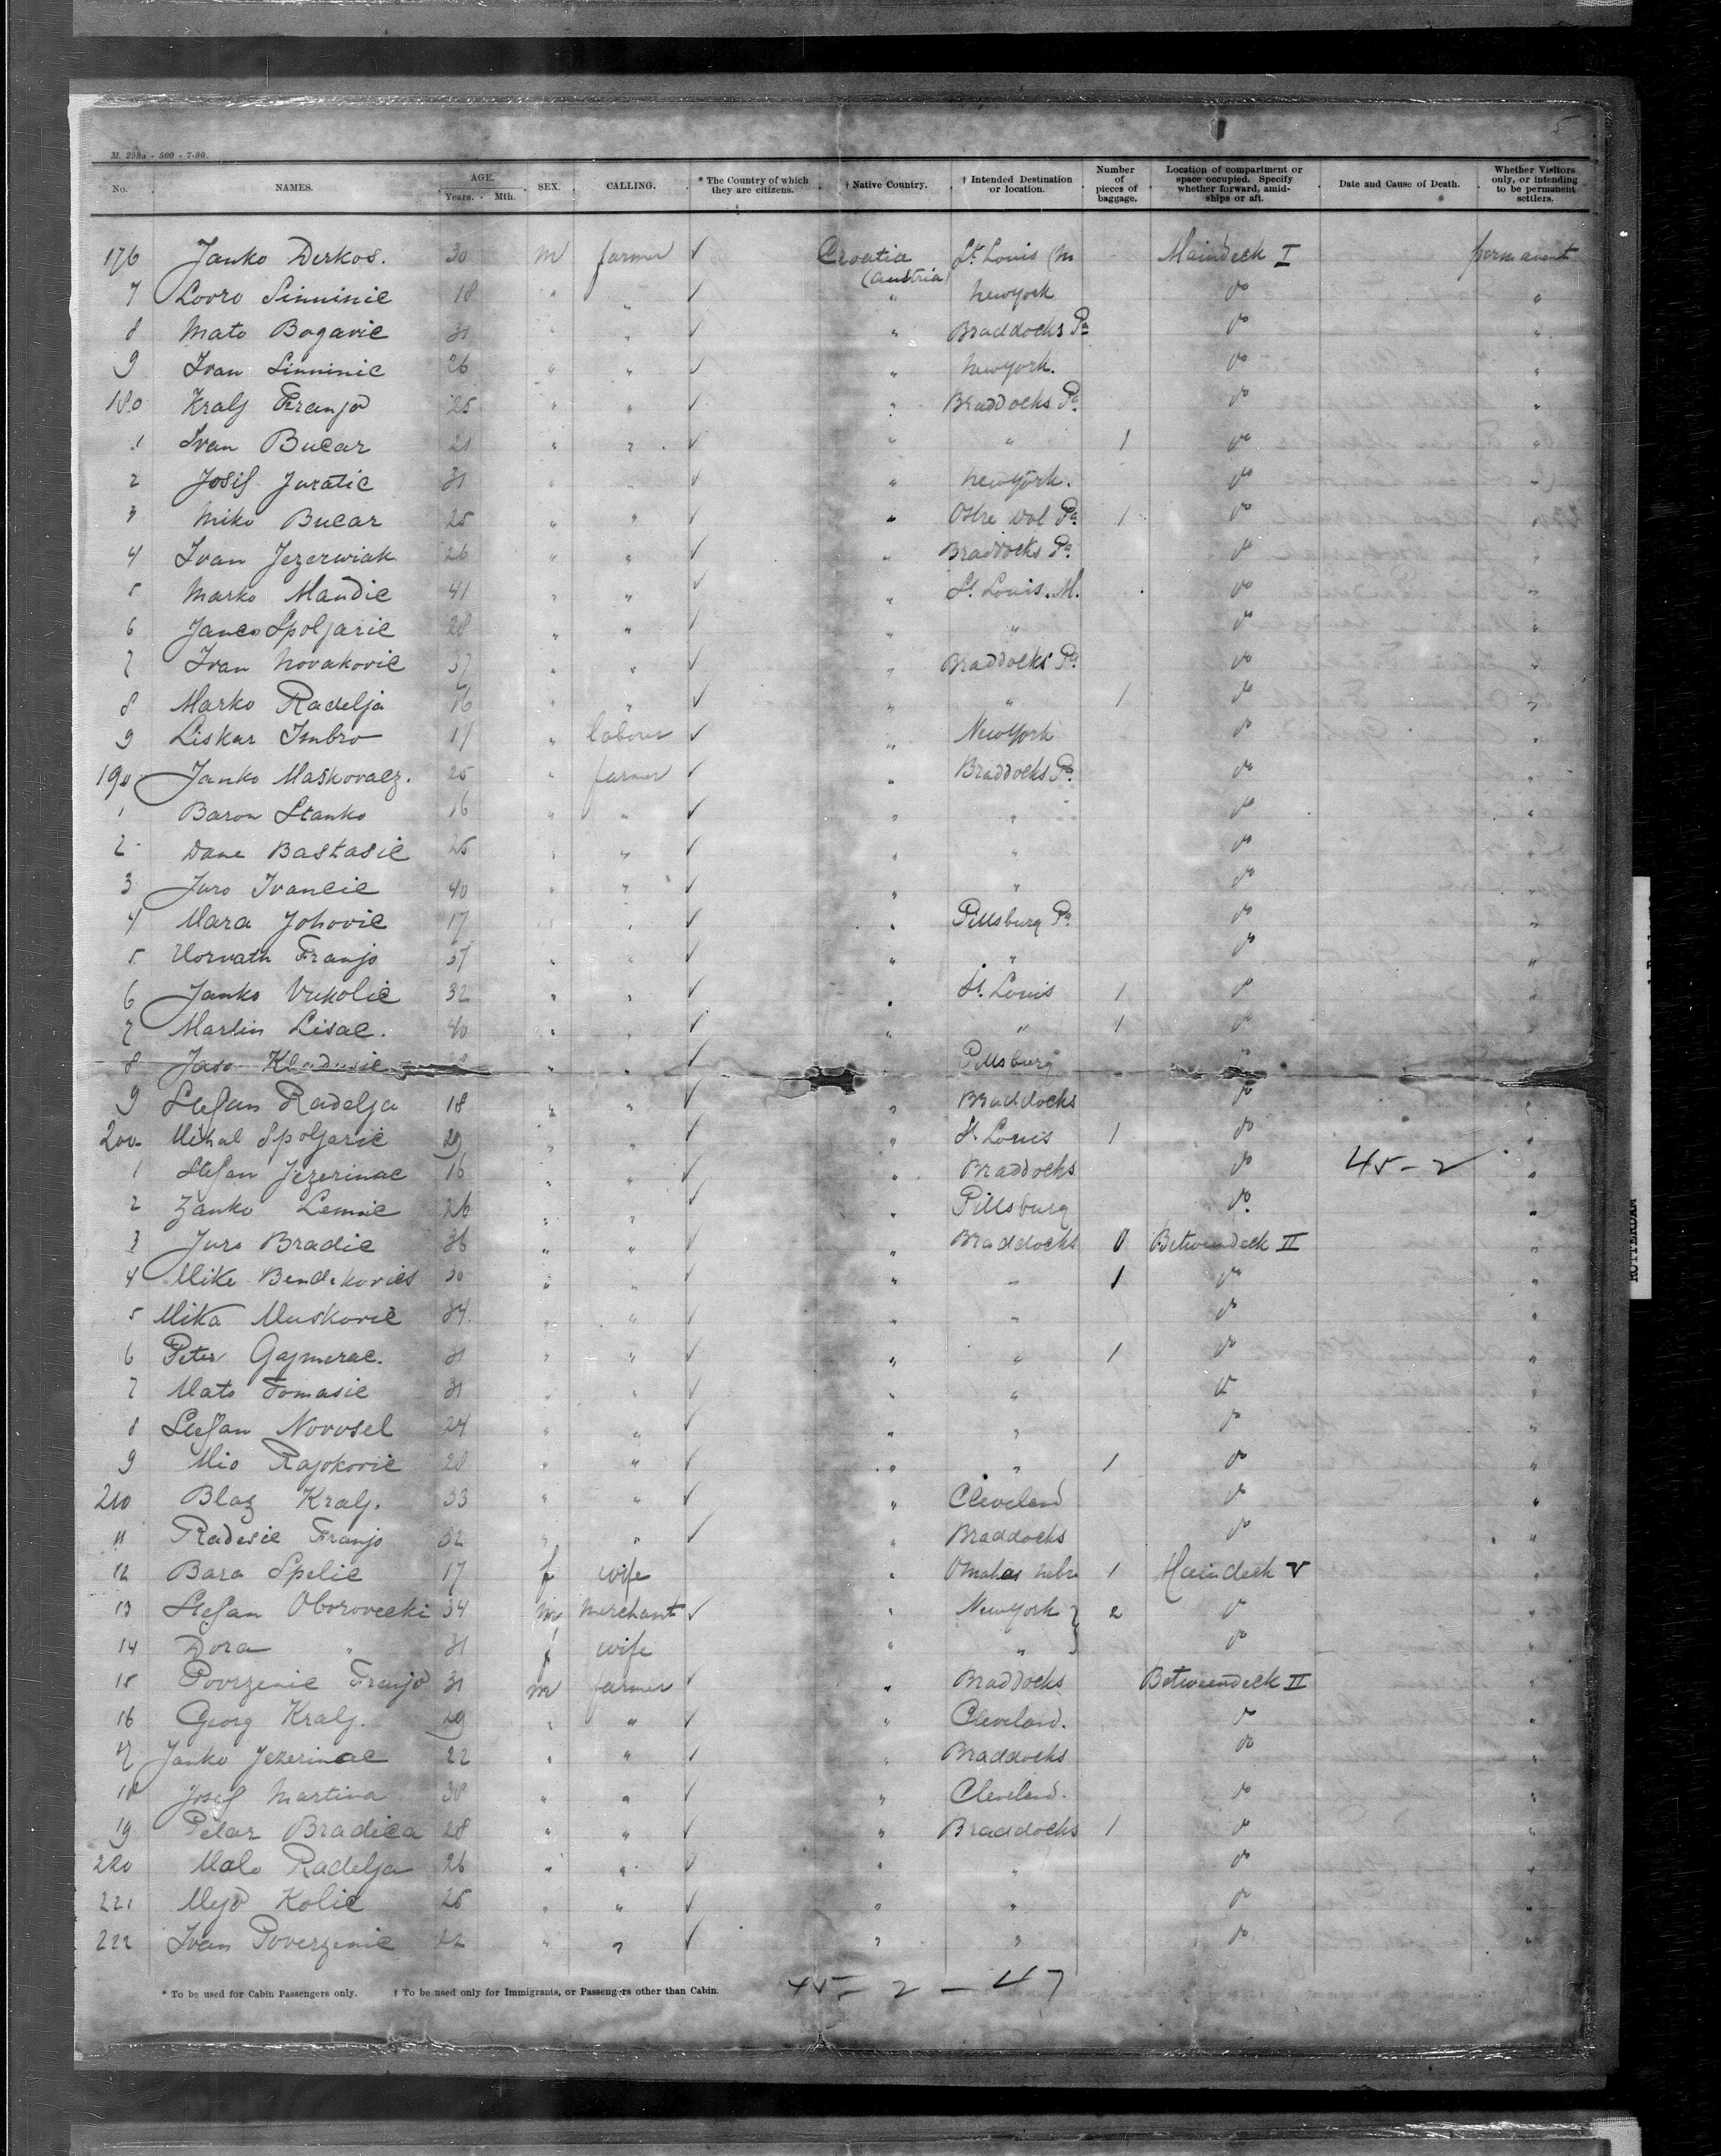 5
M. 293a - 500 - 7-90.
No. NAMES. AGE. Years. Mth. SEX. CALLING. * The Country of which they are citizens. † Native Country. † Intended Destination or location. Number of pieces of baggage. Location of compartment or space occupied. Specify whether forward, amidships or aft. Date and Cause of Death. Whether Visitors only, or intending to be permanent settlers.
176 Janko Derkos. 30 m farmer ✓ Croatia (Austria) St. Louis (M Maindeck I permanent
7 Lovro Sinninic 18 " " ✓ " New york do "
8 Mato Bogavic 31 " " ✓ " Braddocks Pa do "
9 Ivan Sinninic 26 " " ✓ " New york. do "
180 Kralj Franjo 25 " " ✓ " Braddocks Pa. do "
1 Ivan Bucar 21 " " ✓ " " 1 do "
2 Josif Juratic 31 " " ✓ " New york. do "
3 Miko Bucar 25 " " ✓ " Pa. 1 do "
4 Ivan Jezerwiak 26 " " ✓ " Braddocks Pa. do "
5 Marko Mandic 41 " " ✓ " St. Louis. M. do "
6 Janco Spoljaric 28 " " ✓ " " do "
7 Ivan Novakovic 37 " " ✓ " Braddocks Pa. do "
8 Marko Radelja " " ✓ " " 1 do "
9 Liskar Imbro 17 " labour ✓ " New York do "
190 Janko Maskovacz. 25 " farmer ✓ " Braddocks Pa. do "
1 Baron Stanko 16 " " ✓ " " do "
2 Dane Bastasic 25 " " ✓ " " do "
3 Juro Ivancic 40 " " ✓ " " do "
4 Mara Johovic 17 " " ✓ " Pittsburg Pa. do "
5 Horvath Franjo 37 " " ✓ " " do "
6 Janko Vukolic 32 " " ✓ " St. Louis 1 do "
7 Martin Lisac. 40 " " ✓ " " 1 do "
8 Jaso Kladusic " " ✓ Pittsburg "
9 Stefan Radelja 18 " " ✓ " Braddocks do "
200 Mihal Spoljaric 29 " " ✓ " St. Louis 1 do "
1 Stefan Jezerinac 16 " " ✓ " Braddocks do 45-2 "
2 Zanko Lemic 26 " " ✓ " Pittsburg do. "
3 Juro Bradic 36 " " ✓ " Braddocks Betweendeck II "
4 Mike Bendekovics 30 " " ✓ " " 1 do "
5 Mika Muskovic 34. " " ✓ " " do "
6 Peter Gajmerac. 31 " " ✓ " " 1 do "
7 Mato Tomasic 31 " " ✓ " " do "
8 Stefan Novosel 24 " " ✓ " " do "
9 Mio Rajokovic 28 " " ✓ " " 1 do "
210 Blaz Kralj. 33 " " ✓ " Cleveland do "
11 Radesic Franjo 32 " " ✓ " Braddocks do "
12 Bara Spelic 17 f wife " Omahas nebr 1 Maindeck V "
13 Stefan Oborovecki 34 m merchant ✓ " New York 2 do "
14 Dora " 31 f wife " " do "
15 Povrzenic Franjo 31 m farmer ✓ " Braddocks Betweendeck II "
16 Georg Kralj. 29 " " ✓ " Cleveland. do "
17 Janko Jezerinac 22 " " ✓ " Braddocks do "
18 Josef Martina 38 " " ✓ " Cleveland. do "
19 Petar Bradica 28 " " ✓ " Braddocks 1 do "
220 Mato Radelja 26 " " ✓ " " do "
221 Mejo Kolic 25 " " ✓ " " do "
222 Ivan Poverzenic 22 " " ✓ " " do "
* To be used for Cabin Passengers only. † To be used only for Immigrants, or Passengers other than Cabin.
45 - 2 - 47
ROTTERDAM